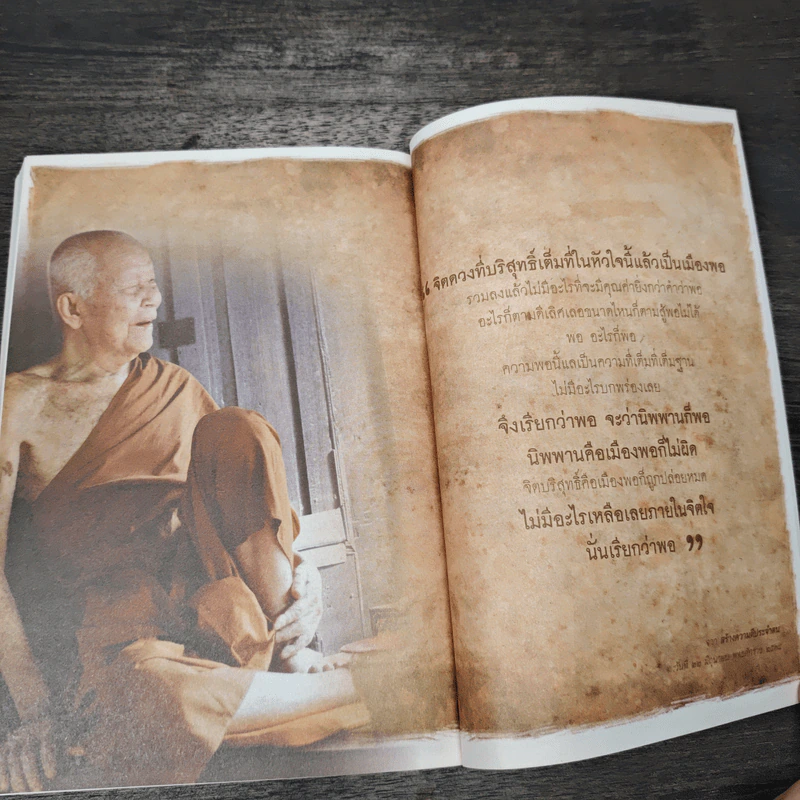 “ จิตดวงที่บริสุทธิ์เต็มที่ในหัวใจนี้แล้วเป็นเมืองพอ
รวมลงแล้วไม่มีอะไรที่จะมีคุณค่ายิ่งกว่าคำว่าพอ
อะไรก็ตามดีเลิศเลอขนาดไหนก็ตามสู้พอไม่ได้
พอ อะไรก็พอ
ความพอนี้แลเป็นความที่เต็มที่เต็มฐาน
ไม่มีอะไรบกพร่องเลย
จึงเรียกว่าพอ จะว่านิพพานก็พอ
นิพพานคือเมืองพอก็ไม่ผิด
จิตบริสุทธิ์คือเมืองพอก็ถูกปล่อยหมด
ไม่มีอะไรเหลือเลยภายในจิตใจ
นั่นเรียกว่าพอ ”
จาก สร้างความดีประจำตน
วันที่ ๒๒ มิถุนายน พุทธศักราช